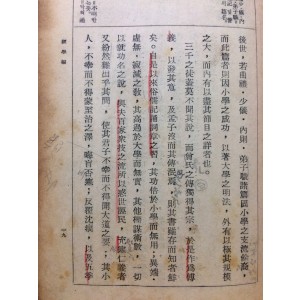 後世,若曲禮,少儀,內則,弟子職諸篇固小學之支流餘裔,
而此篇者則因小學之成功,以著大學之明法,外有以極其規模
之大,而內有以盡其節目之詳者也。
三千之徒蓋莫不聞其說,而曾氏之傳獨得其宗,於是作為傳
義,以發其意,及孟子沒而其傳泯焉,則其書雖存而知者鮮
矣。自是以來俗儒記誦詞章之習,其功倍於小學而無用;異端
虛無寂滅之教,其高過於大學而無實,其他權謀術數,一切
以就功名之說,與夫百家眾技之流所以惑世誣民,充塞仁義者
又紛然雜出乎其間,使其君子不幸而不得聞大道之要,其小
人,不幸而不得蒙至治之澤,晦盲否塞;反覆沈痼,以及五季
一九